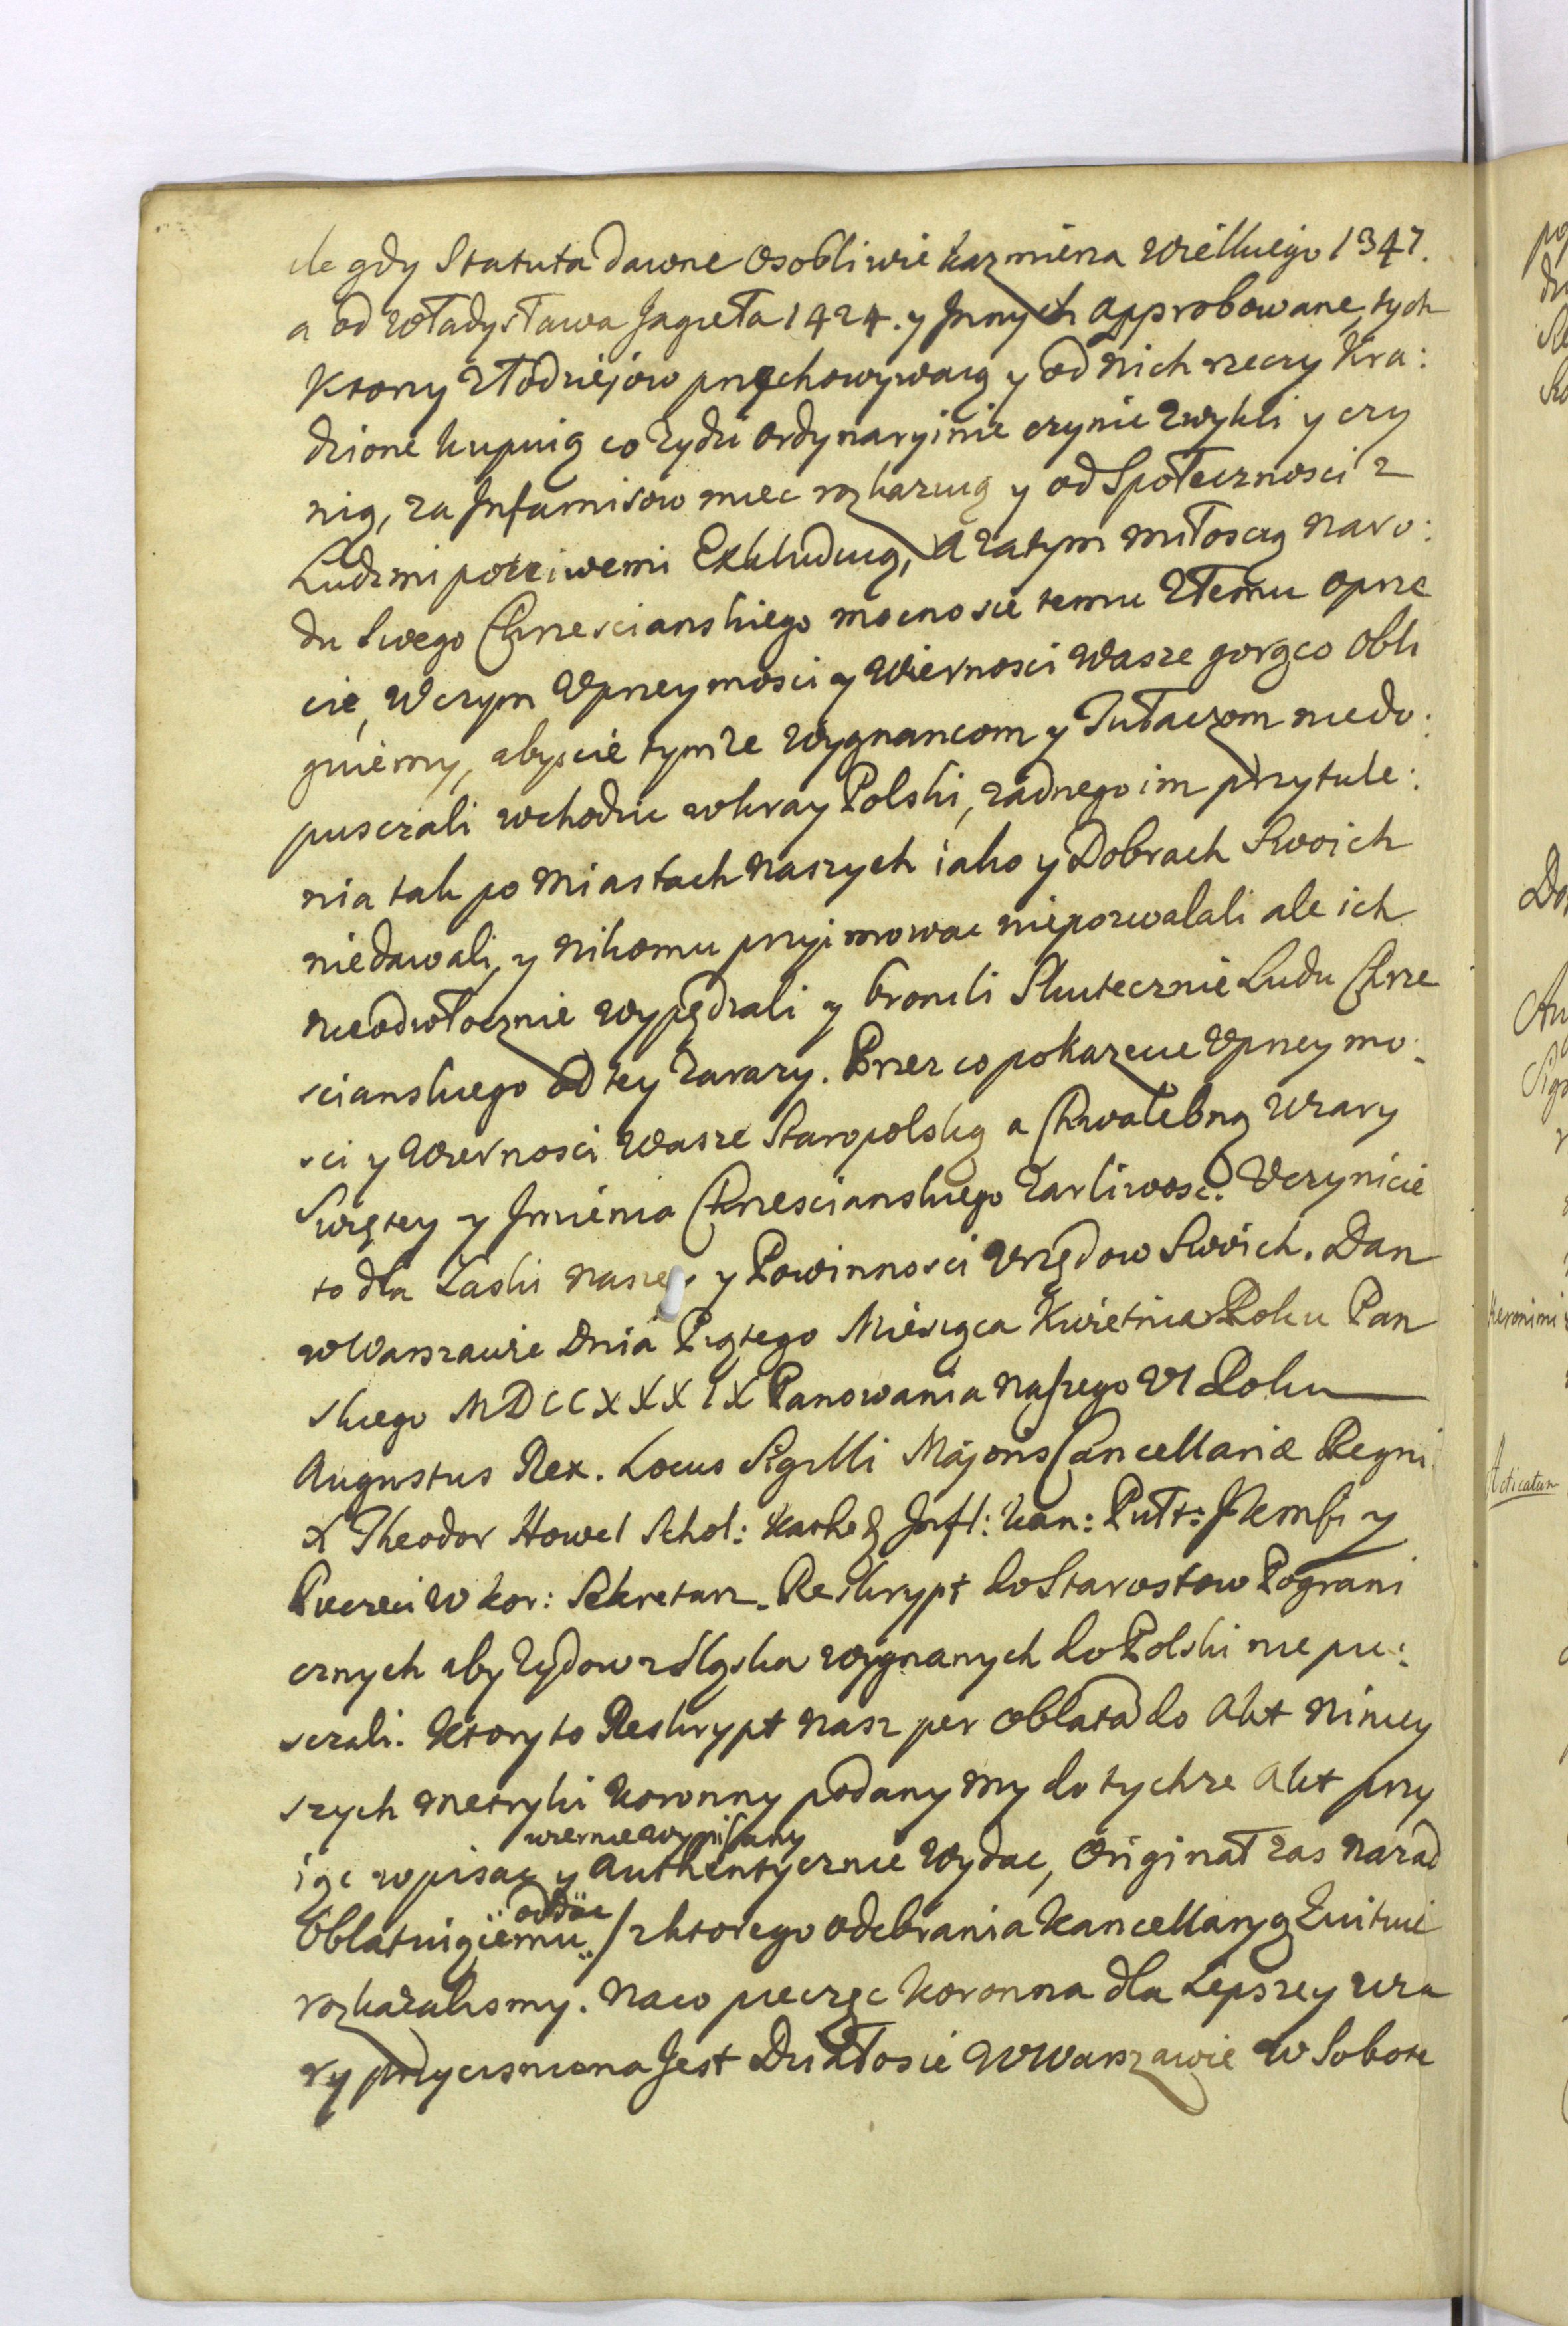 le gdy Statuta dawne osobliwie kazmierza Wielkiego 1347.
a od Władysława Jagieła 1424. y Jnnych approbowane, tych
ktorzy złodziejow przechowywaią y od nich rzeczy kra:
dzione kupuią co Zydzi ordynaryinie czynic zwykli y czy
nią, za Jnfamisow miec rozkazuią y od Społecznosci z
Ludzmi poczciwemi Exkluduią, A zatym miłoscią Naro:
du Swego Chrzescianskiego mocno sie temu złemu oprze
cie, W czym Vprzeymosci y Wiernosci Wasze gorąco obli
guiemy, abyscie tymze wygnancom y Tułaczom niedo:
puszczali wchodzic w kray Polski, zadnego im przytule:
nia tak po Miastach Naszych iako y Dobrach Swoich
niedawali, y nikomu przyimowac niepozwalali ale ich
nieodwłocznie wypędzali y bronili Skutecznie Ludu Chrze
scianskiego od tey zarazy. Przez co pokazecie Vprzeymo:
sci y Wiernosci Wasze Staropolską a Chwalebną Wiary
Swiętey y Jmienia Chrzescianskiego zarliwosc. Vczynicie
to dla Łaski Naszey y Powinnosci Vrzędow Swoich. Dan
w Warszawie Dnia Piątego Miesiąca Kwietnia Roku Pan
skiego MDCCXXXIX Panowania Naszego VI Roku
Augustus Rex. Locus Sigilli Majoris Cancellariæ Regni
X Theodor Howel Schol: Infl: kan: Pułt: y
Pieczęci W kor: Sekretarz. Reskrypt do Starostow Pograni
cznych aby Zydow z Sląska wygnanych do Polski nie pu:
sczali. ktory to Reskrypt Nasz per oblatã do Akt Niniey
szych Metryki koronny podany my do tychze Akt przy
wiernie wypisany
iąc wpisac y Authentycznie wydac, Originał zas Nazad
oddac
Oblatuiąciemu / z ktorego odebrania kancellaryą kwituie
rozkazalismy. Naco pieczęc koronna dla Lepszey wia
ry przycisniona Jest Działosie w Warszawie w Sobote
Heronimi
Acticatum